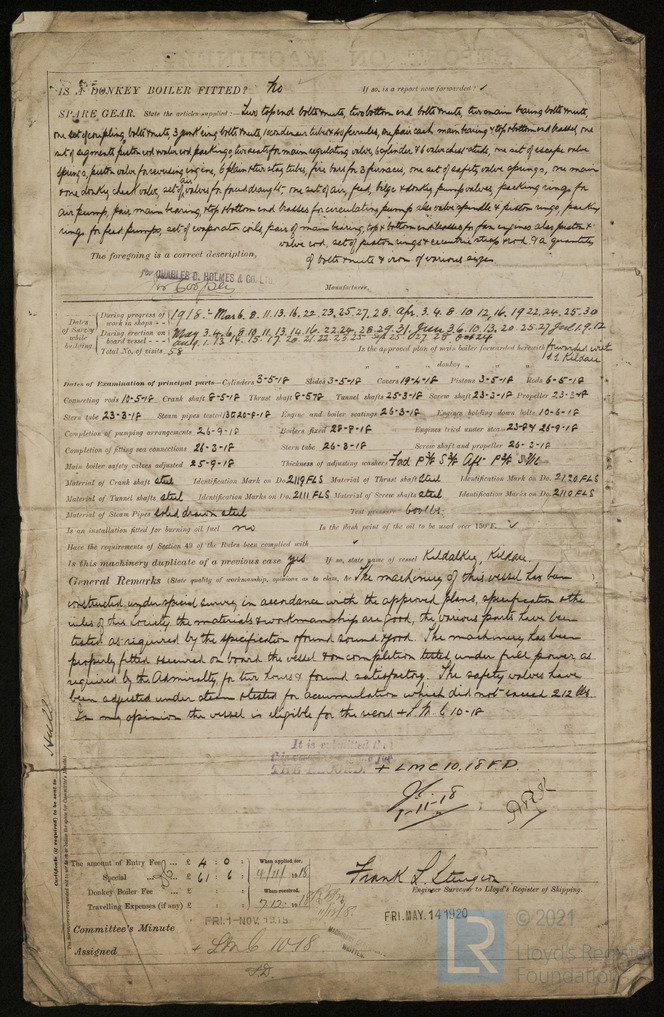 IS A DONKEY BOILER FITTED? No If so, is a report now forwarded? ✓
SPARE GEAR. State the articles supplied:— Two top end bolts & nuts, two bottom end bolts & nuts, two main bearing bolts & nuts,
one set of coupling bolts & nuts, 3 junk ring bolts & nuts, condenser tubes & ferrules, one pair each main bearing & top & bottom end brasses, one
set of segments piston rod & valve rod packings, two seats for main regulating valve, 6 cylinder & 6 valve chest studs, one set of escape valve
springs, piston valve for reversing engine, 6 plain & two stay tubes, fire bars for 3 furnaces, one set of safety valve springs, one main
& one donkey check valve, set of air valves for forced draught, one set of air, feed, bilge & donkey pump valves, packing rings for
air pump, pair main bearing, & top & bottom end brasses for circulating pump also valve spindle & piston rings, packing
rings for feed pumps, set of evaporator coils, pair of main bearing, top & bottom end brasses for fan engines also piston &
valve rod, set of piston rings & eccentric strap & rod & a quantity
The foregoing is a correct description, of bolts & nuts & iron of various sizes.
for CHARLES D. HOLMES & CO. LTD.
Manufacturer.
Dates of Survey while building
During progress of work in shops - - 1918:- Mar 6. 8. 11. 13. 16. 22. 23. 25. 27. 28. Apr. 3. 4. 8. 10. 12. 16. 19. 22. 24. 25. 30
During erection on board vessel - - - May 3. 4. 6. 8. 10. 11. 13. 14. 16. 22. 24. 28. 29. 31. June 3. 6. 10. 13. 20. 25. 27 July 1. 9. 12
Aug. 1. 13. 14. 15. 17. 20. 21. 22. 23. 25
Total No. of visits 58 Is the approved plan of main boiler forwarded herewith forwarded with S.S. Kildare
" " " donkey " " "
Dates of Examination of principal parts—Cylinders 3-5-18 Slides 3-5-18 Covers 19-4-18 Pistons 3-5-18 Rods 6-5-18
Connecting rods 10-5-18 Crank shaft 8-5-18 Thrust shaft 8-5-18 Tunnel shafts 25-3-18 Screw shaft 23-3-18 Propeller 23-3-18
Stern tube 23-3-18 Steam pipes tested 20-8-18 Engine and boiler seatings 26-3-18 Engines holding down bolts 10-6-18
Completion of pumping arrangements 26-9-18 Boilers fixed 28-8-18 Engines tried under steam 23-8 & 26-9-18
Completion of fitting sea connections 26-3-18 Stern tube 26-3-18 Screw shaft and propeller 26-3-18
Main boiler safety valves adjusted 25-9-18 Thickness of adjusting washers
Material of Crank shaft steel Identification Mark on Do. 2119 FLS Material of Thrust shaft steel Identification Mark on Do. 2120 FLS
Material of Tunnel shafts steel Identification Marks on Do. 2111 FLS Material of Screw shafts steel Identification Marks on Do. 2110 FLS
Material of Steam Pipes solid drawn steel Test pressure 600 lbs
Is an installation fitted for burning oil fuel no Is the flash point of the oil to be used over 150°F. ✓
Have the requirements of Section 49 of the Rules been complied with ✓
Is this machinery duplicate of a previous case yes If so, state name of vessel Kildalkey, Kildare.
General Remarks (State quality of workmanship, opinions as to class, &c. The machinery of this vessel has been
constructed under special survey in accordance with the approved plans, specification & the
rules of this Society, the materials & workmanship are good, the various parts have been
tested as required by the specification & found sound & good. The machinery has been
properly fitted & secured on board the vessel & on completion tested under full power, as
required by the Admiralty, for two hours & found satisfactory. The safety valves have
been adjusted under steam & tested for accumulation which did not exceed 212 lbs.
In my opinion the vessel is eligible for the record + L.M.C. 10-18
Hull
It is submitted that
THE RECORD. + LMC 10.18 F.D.
-11-18
Certificate (if required) to be sent to
The amount of Entry Fee ... £ 4 : 0 : When applied for,
Special ... £ 61 : 6 : 4/11/1918
Donkey Boiler Fee ... £ : : When received,
Travelling Expenses (if any) £ : :
Frank L. Sturgeon
Engineer Surveyor to Lloyd's Register of Shipping.
Committee's Minute FRI. 1-NOV. 1918 FRI. MAY. 14 1920
Assigned + L.M.C. 10-18
F.D.
© 2021
LR
Lloyd's Register
Foundation